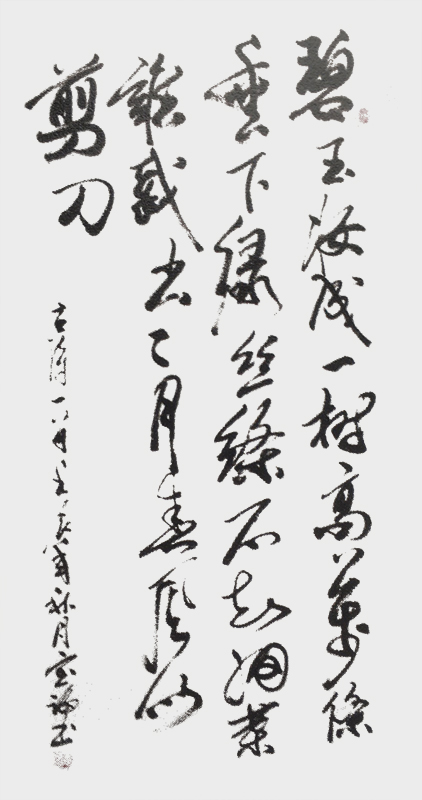 碧玉妝成一樹高萬條
垂下緑丝絛不知細葉
誰裁出二月春風似
剪刀
古詩一首 年秋月